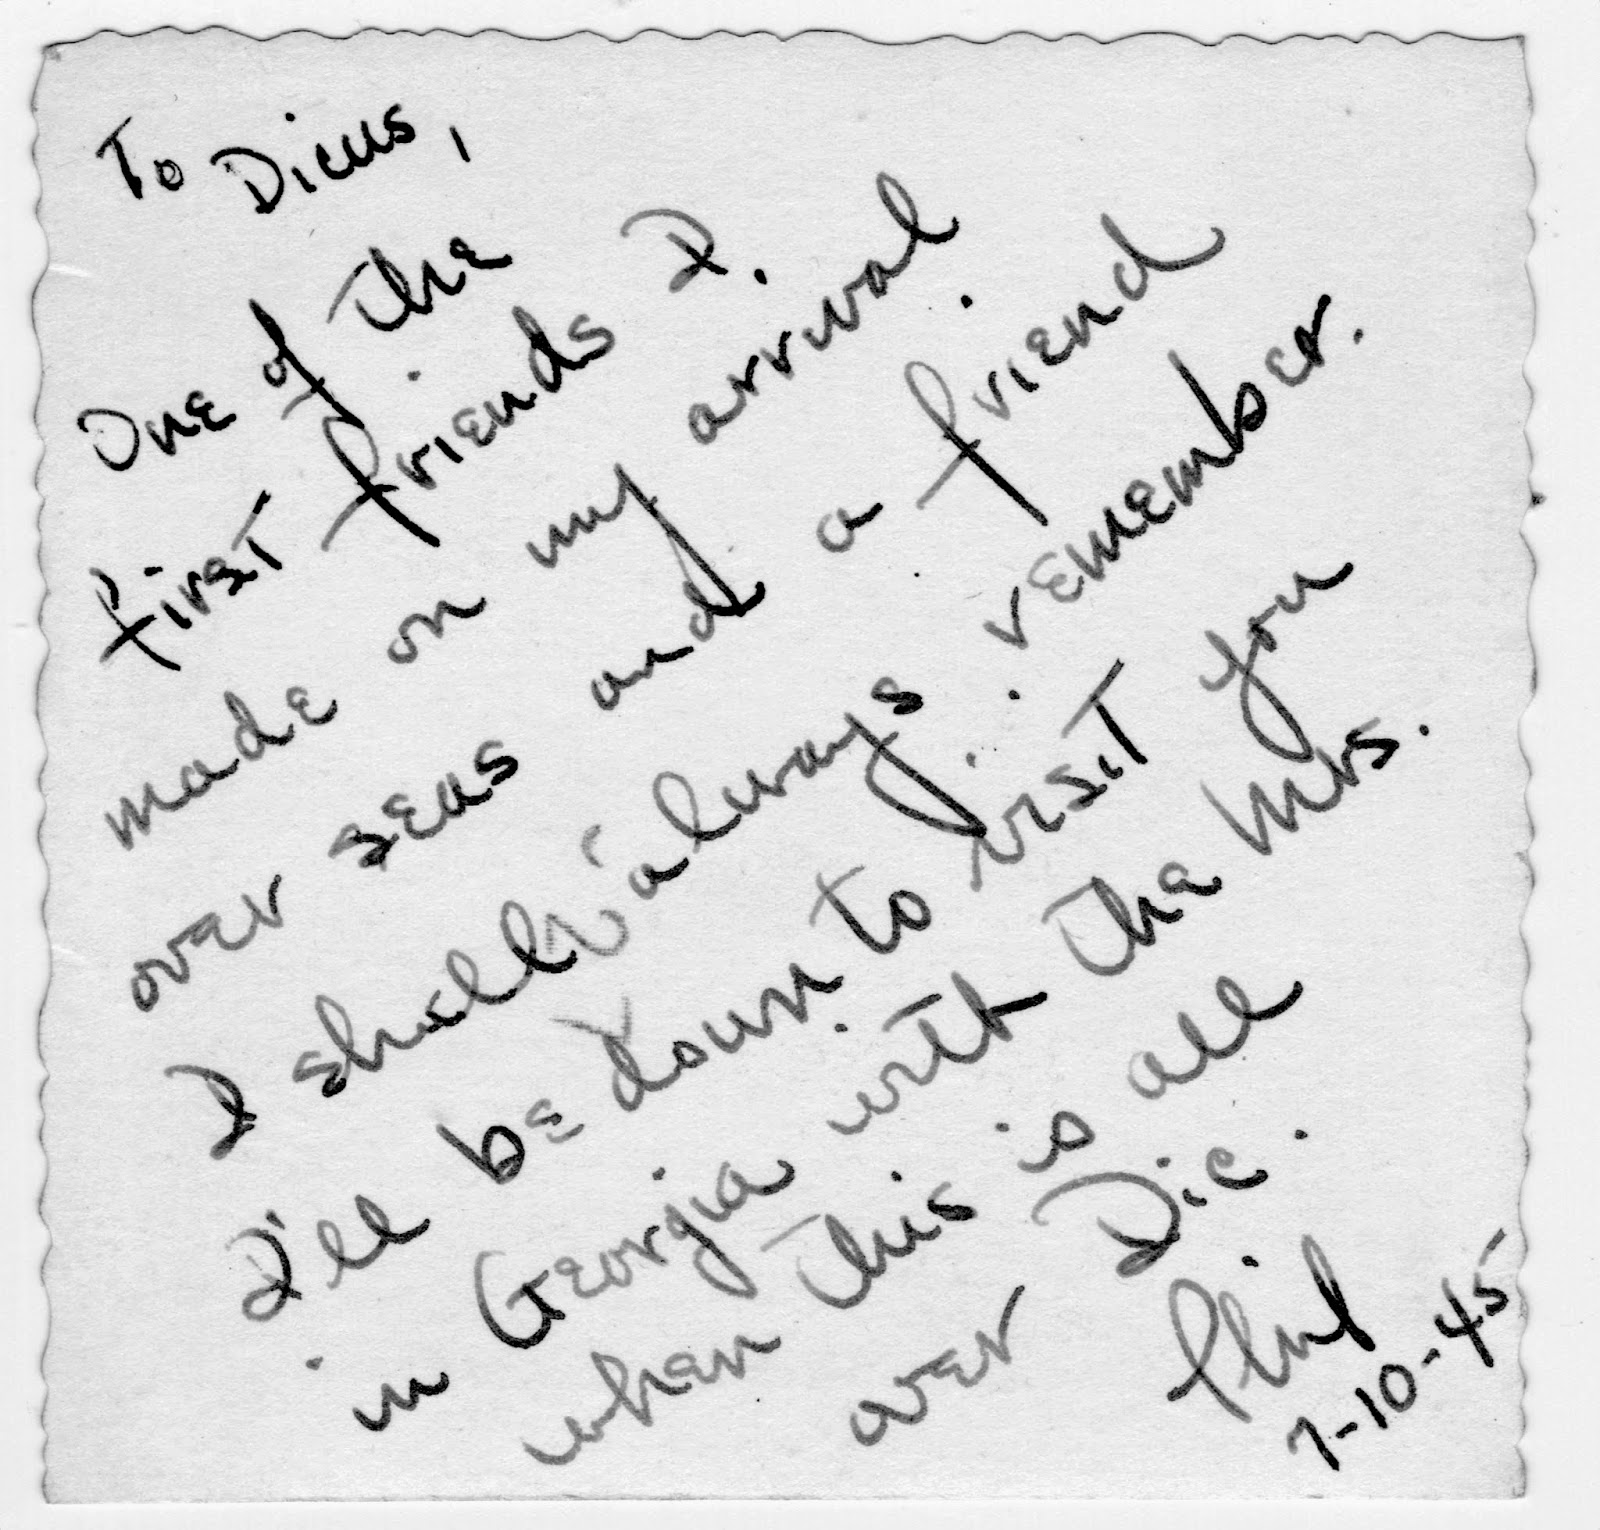 To Dicus,
One of the
first friends I
made on my arrival
over seas and a friend
I shall always remember.
I'll be down to visit you
in Georgia with the Mrs.
when this is all
over Dic.
Phil
7-10-45